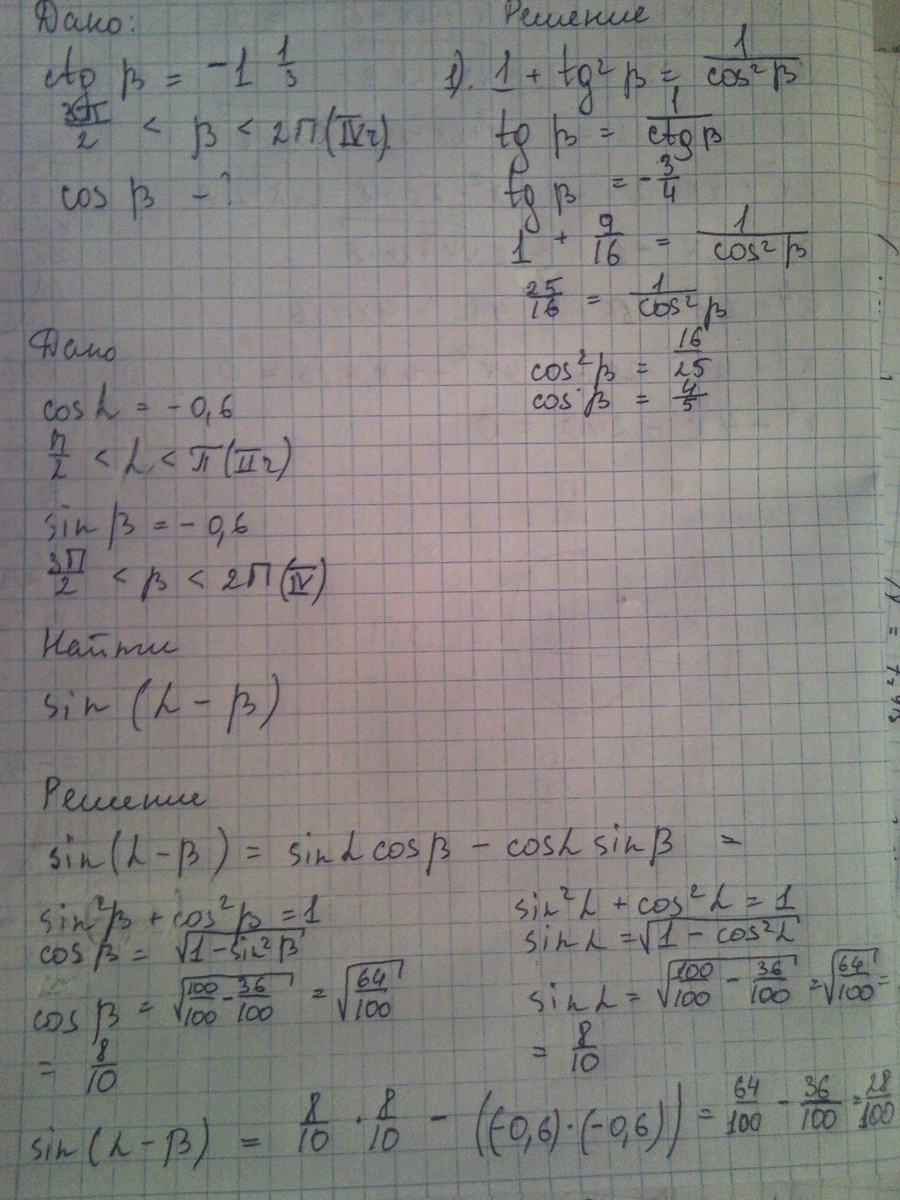 Дано:
ctg β = -1 1/3
3π/2 < β < 2π (IVч).
cos β - ?
Решение
1). 1 + tg²β = 1/cos²β
tg β = 1/ctg β
tg β = -3/4
1 + 9/16 = 1/cos²β
25/16 = 1/cos²β
cos²β = 16/25
cos β = 4/5
Дано
cos α = -0,6
π/2 < α < π (IIч)
sin β = -0,6
3π/2 < β < 2π (IV)
Найти
sin (α - β)
Решение
sin(α - β) = sin α cos β - cos α sin β =
sin²β + cos²β = 1
cos β = √(1 - sin²β)
cos β = √(100/100 - 36/100) = √(64/100)
= 8/10
sin²α + cos²α = 1
sin α = √(1 - cos²α)
sin α = √(100/100 - 36/100) = √(64/100) =
= 8/10
sin(α - β) = 8/10 · 8/10 - ((-0,6)·(-0,6)) = 64/100 - 36/100 = 28/100